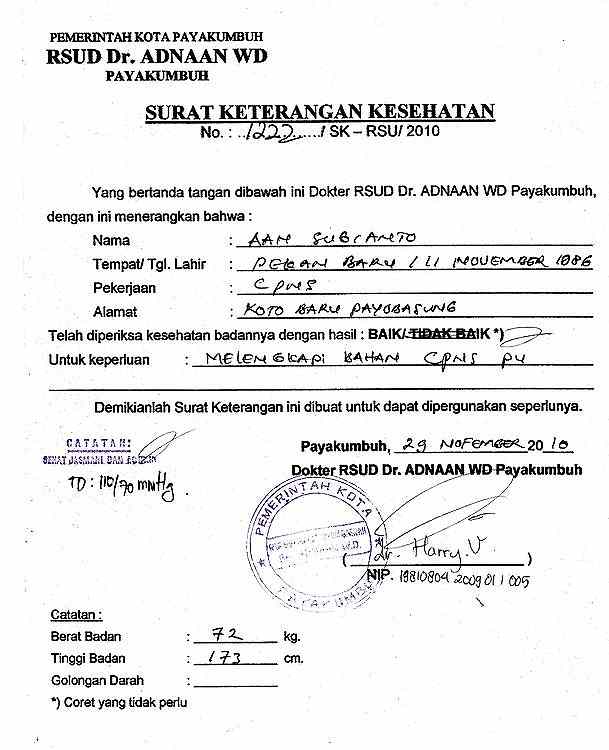 PEMERINTAH KOTA PAYAKUMBUH
RSUD Dr. ADNAAN WD
PAYAKUMBUH
SURAT KETERANGAN KESEHATAN
No. : ../222...../ SK – RSU/ 2010
Yang bertanda tangan dibawah ini Dokter RSUD Dr. ADNAAN WD Payakumbuh,
dengan ini menerangkan bahwa :
Nama : AAN SUBIANTO
Tempat/ Tgl. Lahir : PEKAN BARU / 11 NOVEMBER 1986
Pekerjaan : CPNS
Alamat : KOTO BARU PAYOBASUNG
Telah diperiksa kesehatan badannya dengan hasil : BAIK/ TIDAK BAIK *)
Untuk keperluan : MELENGKAPI BAHAN CPNS PU
Demikianlah Surat Keterangan ini dibuat untuk dapat dipergunakan seperlunya.
CATATAN:
SEHAT JASMANI DAN
TD : 110/70 mmHg.
Payakumbuh, 29 NOFEMBER 2010
Dokter RSUD Dr. ADNAAN WD Payakumbuh
PEMERINTAH KOTA
PAYAKUMBUH
(dr. Harry.V)
NIP. 19810804 200901 1 005
Catatan :
Berat Badan : 72 kg.
Tinggi Badan : 173 cm.
Golongan Darah :
*) Coret yang tidak perlu